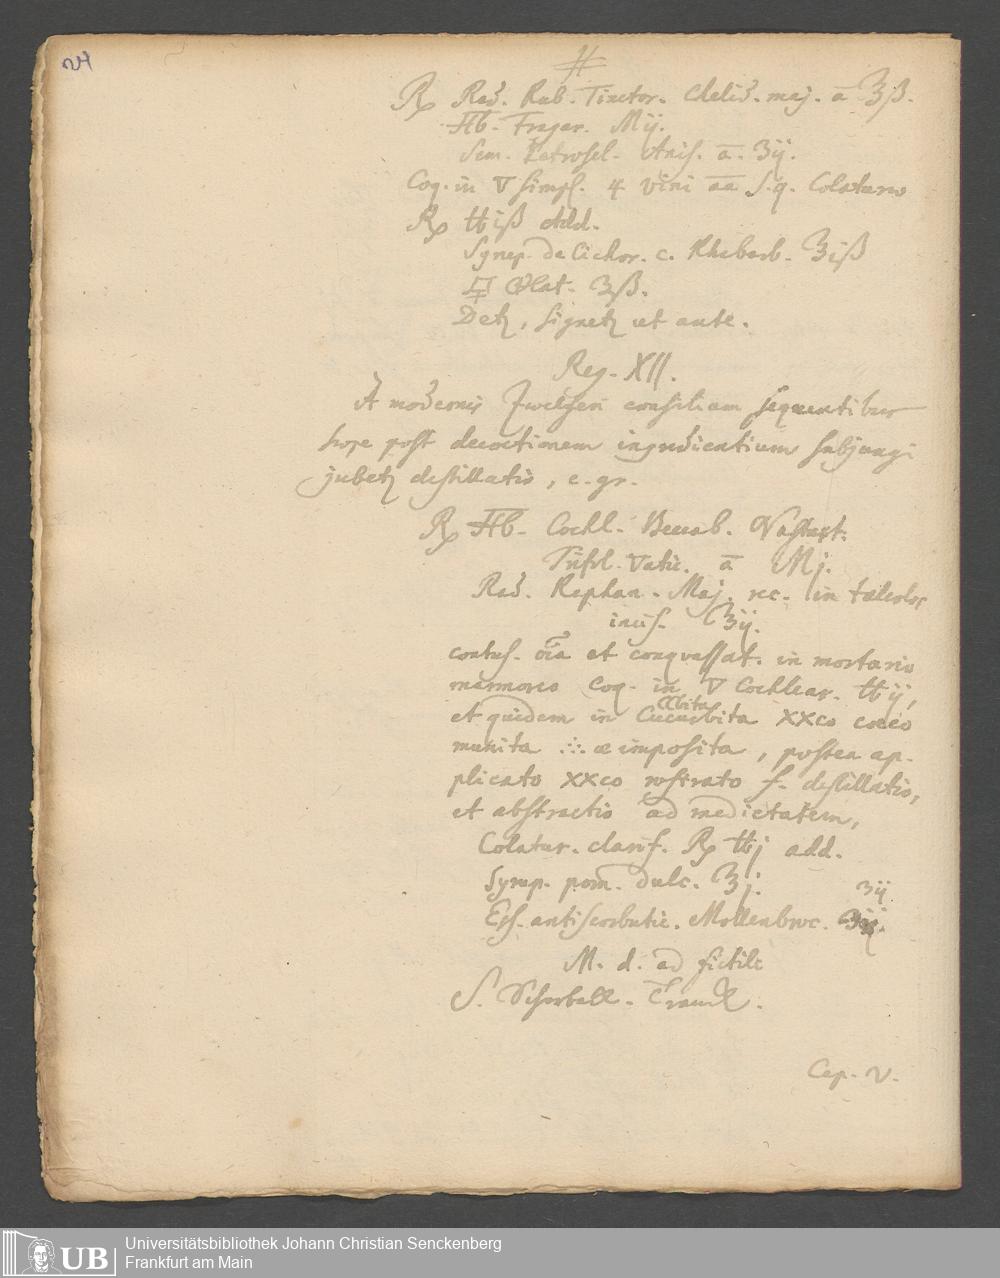 ℞ Rad. Rub. Tinctor. Chelid. maj. a ℥ß.
Hb. Fragar. Mij.
Sem. Petrosel. Anis. a. ʒij.
Coq. in ▽ simpl. & vini aa S.q. Colaturæ
℞ ℔iß Add.
Syrup. de Cichor. c. Rhabarb. ℥iß
ʒß.
Detʒ, signetʒ ut ante.
Reg. XII.
A modernis Zwelfferi consilium sequentibus
sæpe post decoctionem ingredientium subjungi
jubetʒ destillatio, e. gr.
℞ Hb. Cochl. Beccab. Nasturt.
Trifol. aatic. a Mj.
Rad. Raphan. Maj. rec. in taleolas
incis. ℥ij.
contus. oia et conquassat. in mortario
marmoreo Coq. in ▽ Cochlear. ℔ij,
et quidem in Cucurbita XXco cæco
munita ∴ æ imposita, postea ap-
plicato XXco rostrato f. destillatio,
et abstractio ad medietatem,
Colatur. clarif. ℞ ℔j add.
Syrup. pom. dulc. ℥j.
Ess. antiscorbutic. Mollenbroc. ʒij.
M. d. ad fictile
S. Scharbock. Tranck.
Cap. V.
UB
Universitätsbibliothek Johann Christian Senckenberg
Frankfurt am Main